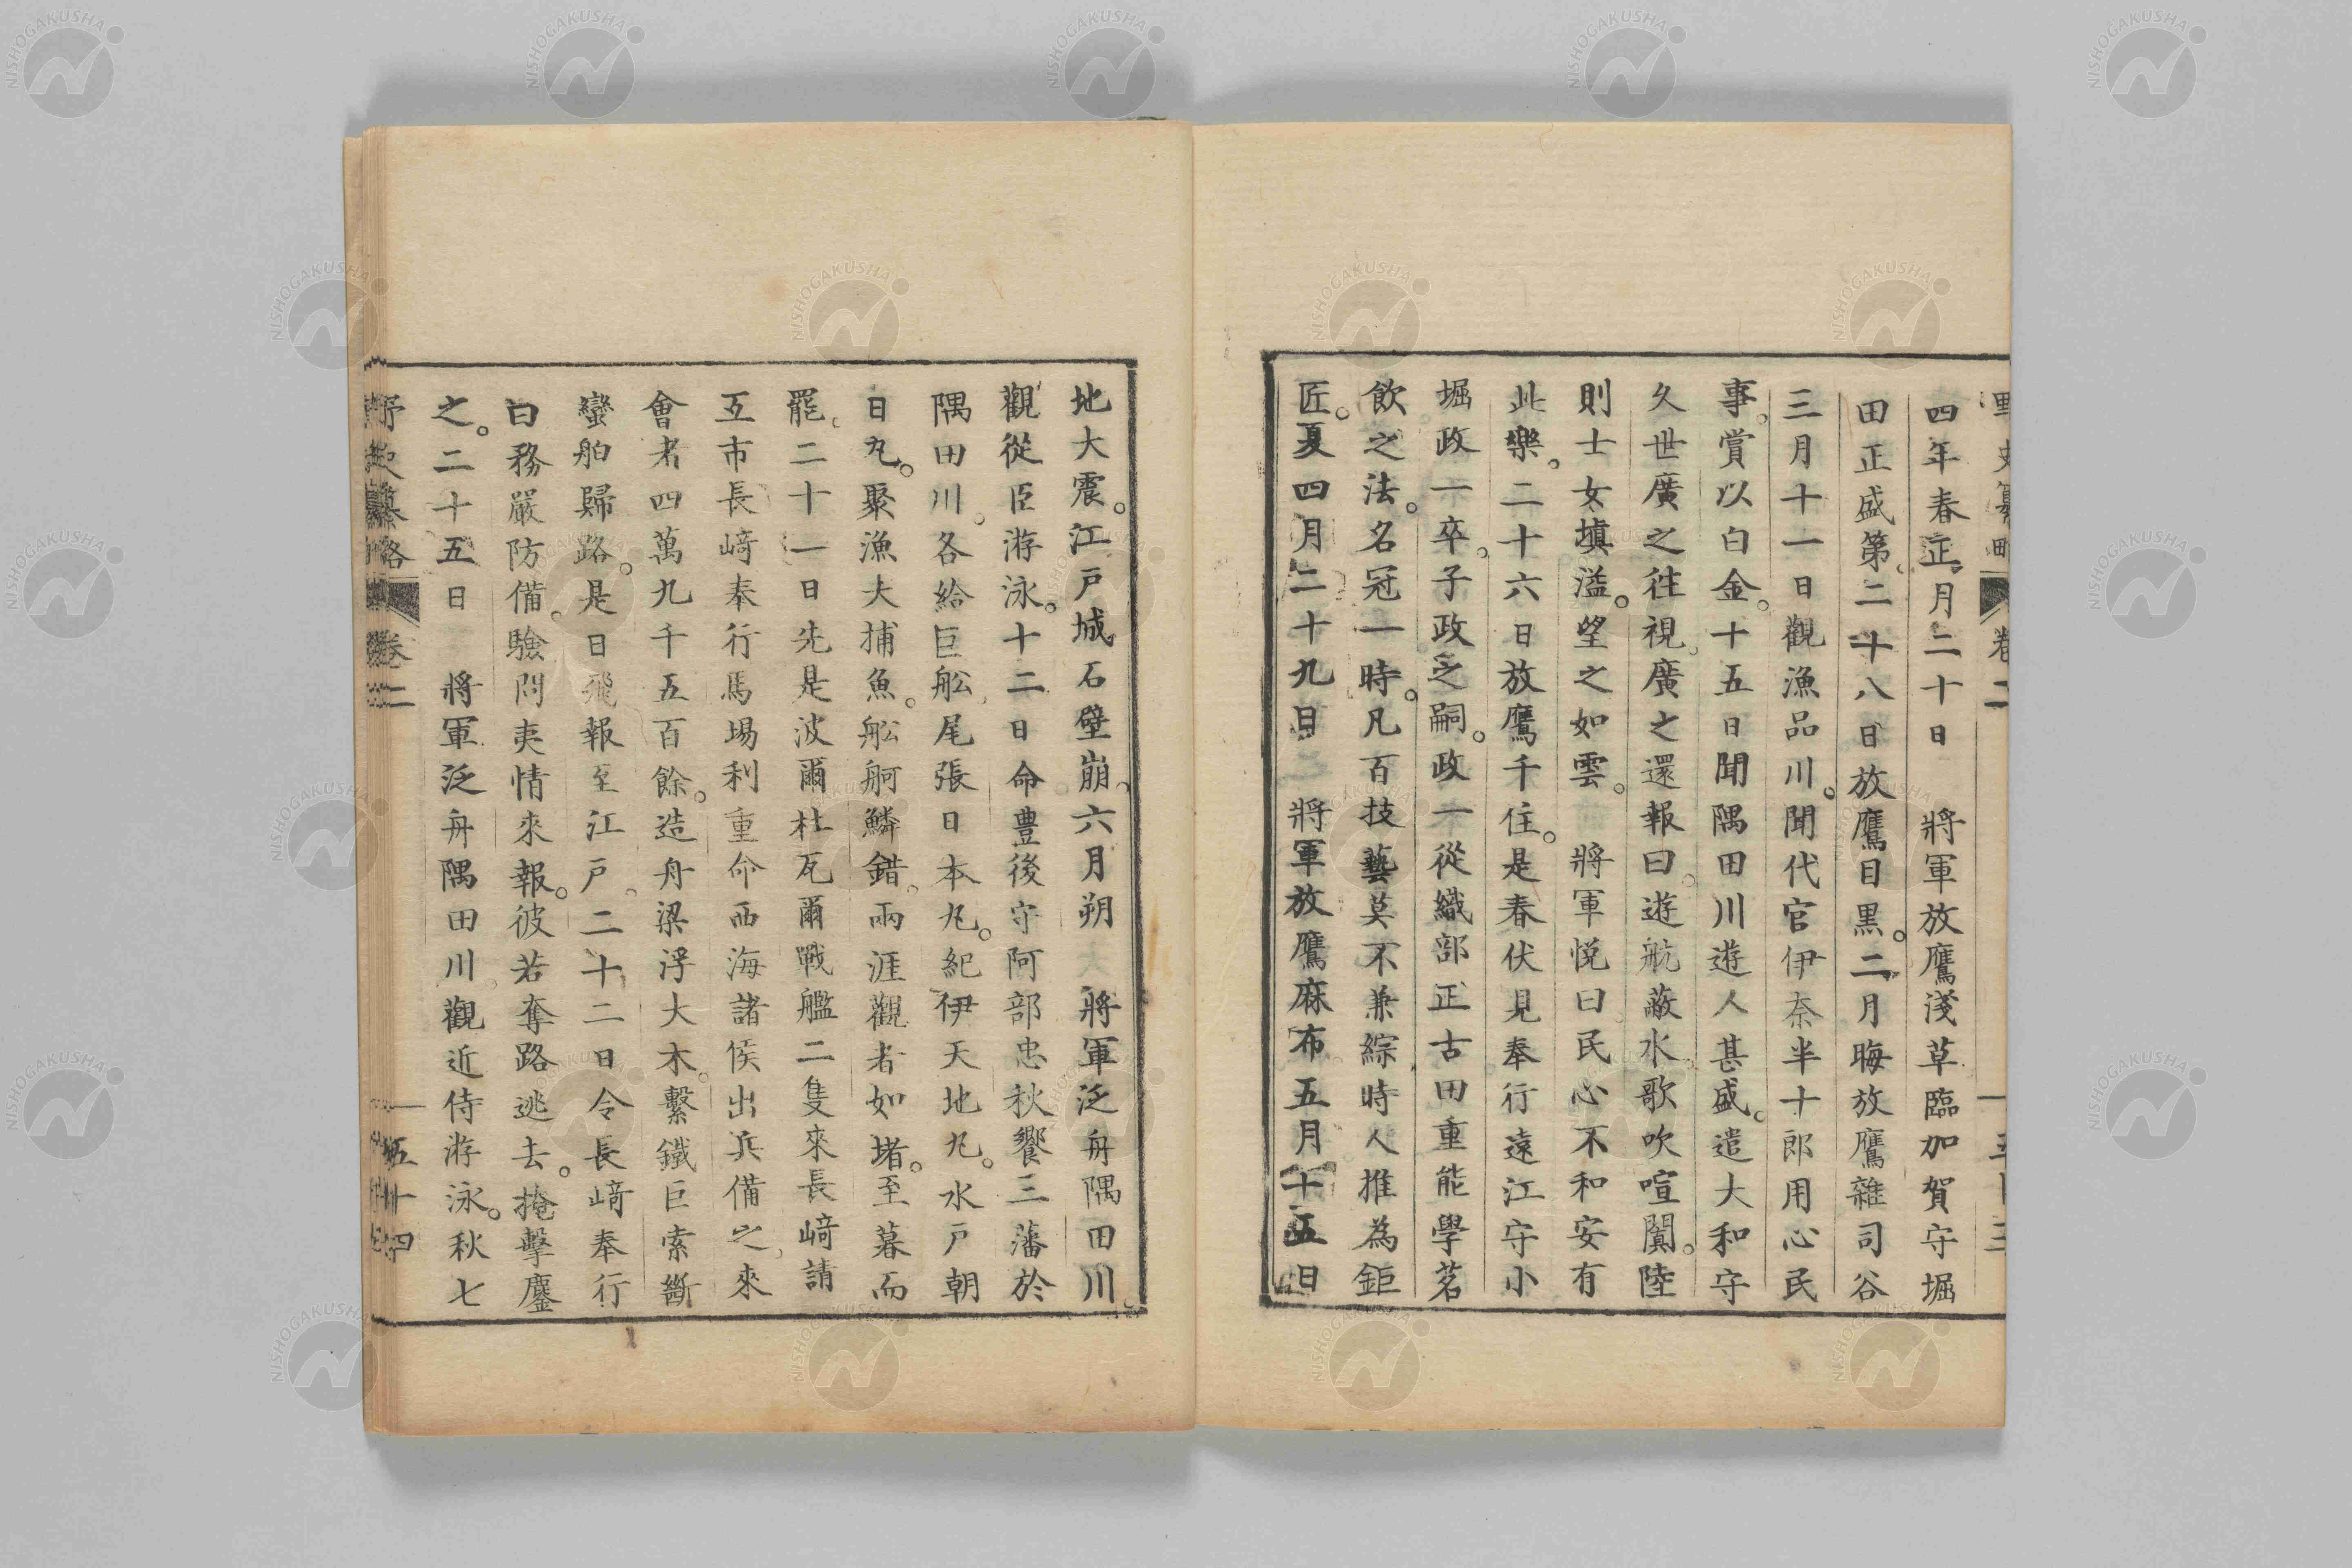 四年春正月二十日　將軍放鷹淺草臨加賀守堀
田正盛第二十八日放鷹目黒。二月晦放鷹雜司谷
三月十一日觀漁品川。聞代官伊奈半十郎用心民
事。賞以白金。十五日聞隅田川遊人甚盛。遣大和守
久世廣之往視。廣之還報曰。遊航蔽水歌吹喧闐。陸
則士女塡溢。望之如雲。　將軍悦曰民心不和安有
此樂。二十六日放鷹千住。是春伏見奉行遠江守小
堀政一卒。子政之嗣。政一從織部正古田重能學茗
飲之法。名冠一時。凡百技藝莫不兼綜時人推為鉅
匠。夏四月二十九日　將軍放鷹麻布五月十五日
地大震。江戸城石壁崩。六月朔　將軍泛舟隅田川。
觀從臣游泳。十二日命豊後守阿部忠秋饗三藩於
隅田川。各給巨舩尾張日本丸。紀伊天地丸。水戸朝
日丸。聚漁大捕魚。舩舸鱗錯。兩涯觀者如堵。至暮而
罷。二十一日先是波爾杜瓦爾戰艦二隻來長﨑請
互市長﨑奉行馬場利重命西海諸侯出兵備之。來
會者四萬九千五百餘。造舟梁浮大木。繫鐵巨索斷
蠻舶歸路。是日飛報至江戸。二十二日令長﨑奉行
曰務嚴防備。驗問夷情來報。彼若奪路逃去。掩擊鏖
之。二十五日　將軍泛舟隅田川觀近侍游泳。秋七
野史纂略　卷二　五十四